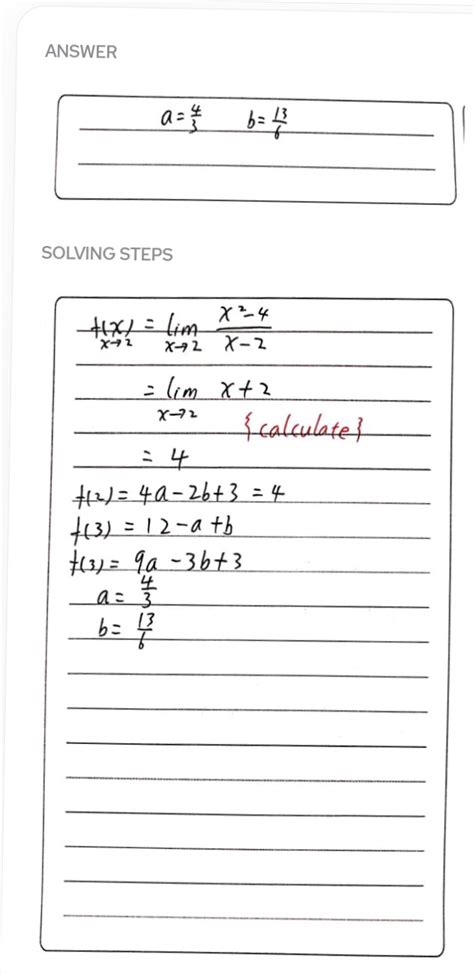 ANSWER
a = 4/3 b = 13/6
SOLVING STEPS
f(x) = lim x²-4 / x-2
x→2 x→2
= lim x+2
x→2
{calculate}
= 4
f(2) = 4a-2b+3 = 4
f(3) = 12-a+b
f(3) = 9a-3b+3
a = 4/3
b = 13/6